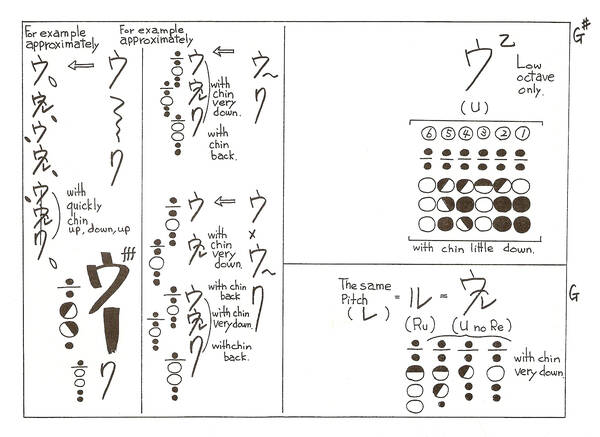 For example
approximately
ウ
ウ
ワ
ウ
ウ
with
quickly
chin
up, down, up
fff
ウ
ワ
For example
approximately
ウ
ウ
ワ
with
chin
very
down.
with
chin
back.
ウ
ウ
with
chin
very
down.
ウ
ワ
with chin
back
with chin
very down.
with chin
back.
ウ乙
Low
octave
only.
(U)
⑥ ⑤ ④ ③ ② ①
with chin little down.
G#
The same
Pitch
(レ)
= ル =
(Ru) (U no Re)
with chin
very down.
G